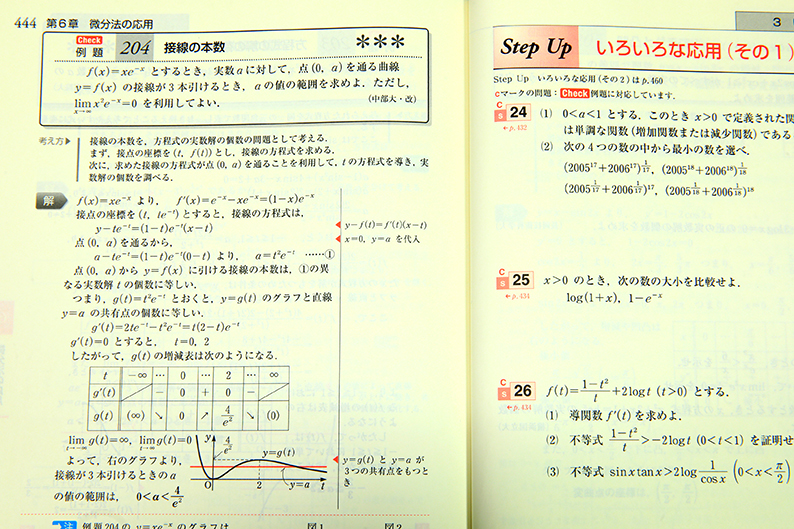 444 第6章 微分法の応用
Check
例題 204 接線の本数 ＊＊＊
f(x)=xe^{-x} とするとき，実数 a に対して，点(0, a) を通る曲線
y=f(x) の接線が3本引けるとき，a の値の範囲を求めよ．ただし，
lim_{x→∞} x²e^{-x}=0 を利用してよい． (中部大・改)
考え方▶ 接線の本数を，方程式の実数解の個数の問題として考える．
まず，接点の座標を (t, f(t)) とし，接線の方程式を求める．
次に，求めた接線の方程式が点(0, a)を通ることを利用して，t の方程式を導き，実
数解の個数を調べる．
解 f(x)=xe^{-x} より， f'(x)=e^{-x}-xe^{-x}=(1-x)e^{-x}
接点の座標を (t, te^{-t}) とすると，接線の方程式は，
y-te^{-t}=(1-t)e^{-t}(x-t)
y-f(t)=f'(t)(x-t)
点(0, a)を通るから，
x=0, y=a を代入
a-te^{-t}=(1-t)e^{-t}(0-t) より， a=t²e^{-t} ……①
点(0, a)から y=f(x) に引ける接線の本数は，①の異
なる実数解 t の個数に等しい．
つまり，g(t)=t²e^{-t} とおくと，y=g(t) のグラフと直線
y=a の共有点の個数に等しい．
g'(t)=2te^{-t}-t²e^{-t}=t(2-t)e^{-t}
g'(t)=0 とすると， t=0, 2
したがって，g(t) の増減表は次のようになる．
t -∞ … 0 … 2 … ∞
g'(t) - 0 + 0 -
g(t) (∞) ↘ 0 ↗ 4/e² ↘ (0)
lim_{t→-∞} g(t)=∞, lim_{t→∞} g(t)=0
よって，右のグラフより，
接線が3本引けるときの a
の値の範囲は， 0<a<4/e²
y 4/e² y=g(t) O 2 y=a t
y=g(t) と y=a が
3つの共有点をもつと
き
注 例題204の y=xe^{-x} のグラフは 図1 図2
3
Step Up いろいろな応用(その1)
Step Up いろいろな応用(その2)は p.460
Cマークの問題：Check 例題に対応しています．
C
S 24 (1) 0<a<1 とする．このとき x>0 で定義された関
→p.432 は単調な関数(増加関数または減少関数)である
(2) 次の4つの数の中から最小の数を選べ．
(2005^{17}+2006^{17})^{1/17}, (2005^{18}+2006^{18})^{1/18}
(2005^{1/17}+2006^{1/17})^{17}, (2005^{1/18}+2006^{1/18})^{18}
C
S 25 x>0 のとき，次の数の大小を比較せよ．
→p.434 log(1+x), 1-e^{-x}
C
S 26 f(t)=(1-t²)/t+2log t (t>0) とする．
→p.434
(1) 導関数 f'(t) を求めよ．
(2) 不等式 (1-t²)/t>-2log t (0<t<1) を証明せ
(3) 不等式 sin x tan x>2log 1/cos x (0<x<π/2)